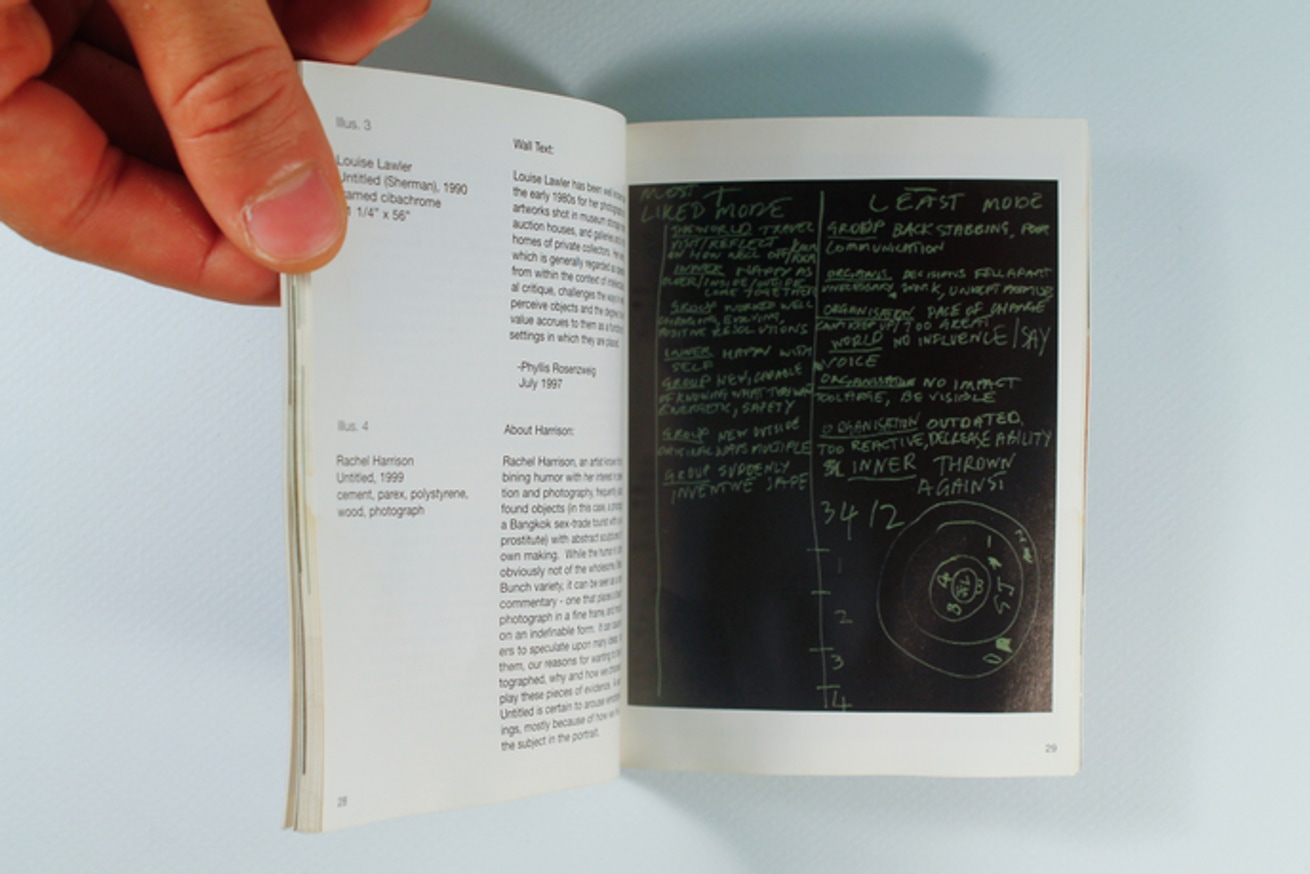 Illus. 3
Louise Lawler
Untitled (Sherman), 1990
framed cibachrome
1/4" x 56"
Wall Text:
Louise Lawler has been well
the early 1980s for her
artworks shot in museum
auction houses, and galleries and
homes of private collectors.
which is generally regarded as
from within the context of
al critique, challenges the
perceive objects and the degree
value accrues to them as a
settings in which they are placed.
-Phyllis Rosenzweig
July 1997
Illus. 4
Rachel Harrison
Untitled, 1999
cement, parex, polystyrene,
wood, photograph
About Harrison:
Rachel Harrison, an artist
bining humor with her interest in
tion and photography, frequently
found objects (in this case, a
a Bangkok sex-trade tourist with
prostitute) with abstract
own making. While the humor is
obviously not of the wholesome,
Bunch variety, it can be seen as
commentary - one that places a
photograph in a fine frame, and
on an indefinable form. It can
ers to speculate upon many ideas,
them, our reasons for wanting to
tographed, why and how we
play these pieces of evidence.
Untitled is certain to arouse
ings, mostly because of how we
the subject in the portrait.
28
MOST +
LIKED MODE
THEWORLD TRAVEL
VISIT/REFLECT
ON HOW WELL OFF
INNER HAPPY AS
OLDER/INSIDE/OUTSIDE
COME TOGETHER
GROUP WORKED WELL
CHANGING, EVOLVING,
POSITIVE RESOLUTIONS
INNER HAPPY WITH
SELF
GROUP NEW, CAPABLE
OF KNOWING WHAT THEY WANT
ENERGETIC, SAFETY
GROUP NEW OUTSIDE
ORIGINAL WAYS MULTIPLE
GROUP SUDDENLY
INVENTIVE SAFE
LEAST MODE
GROUP BACKSTABBING, POOR
COMMUNICATION
ORGANIS. DECISIONS FELL APART
UNNECESSARY WORK,
ORGANISATION PACE OF CHANGE
CANT KEEP UP/TOO GREAT
WORLD NO INFLUENCE/SAY
VOICE
ORGANISATION NO IMPACT
TOO LARGE, BE VISIBLE
ORGANISATION OUTDATED,
TOO REACTIVE, DECREASE ABILITY
INNER THROWN
AGAINST
34/2
1
2
3
4
29